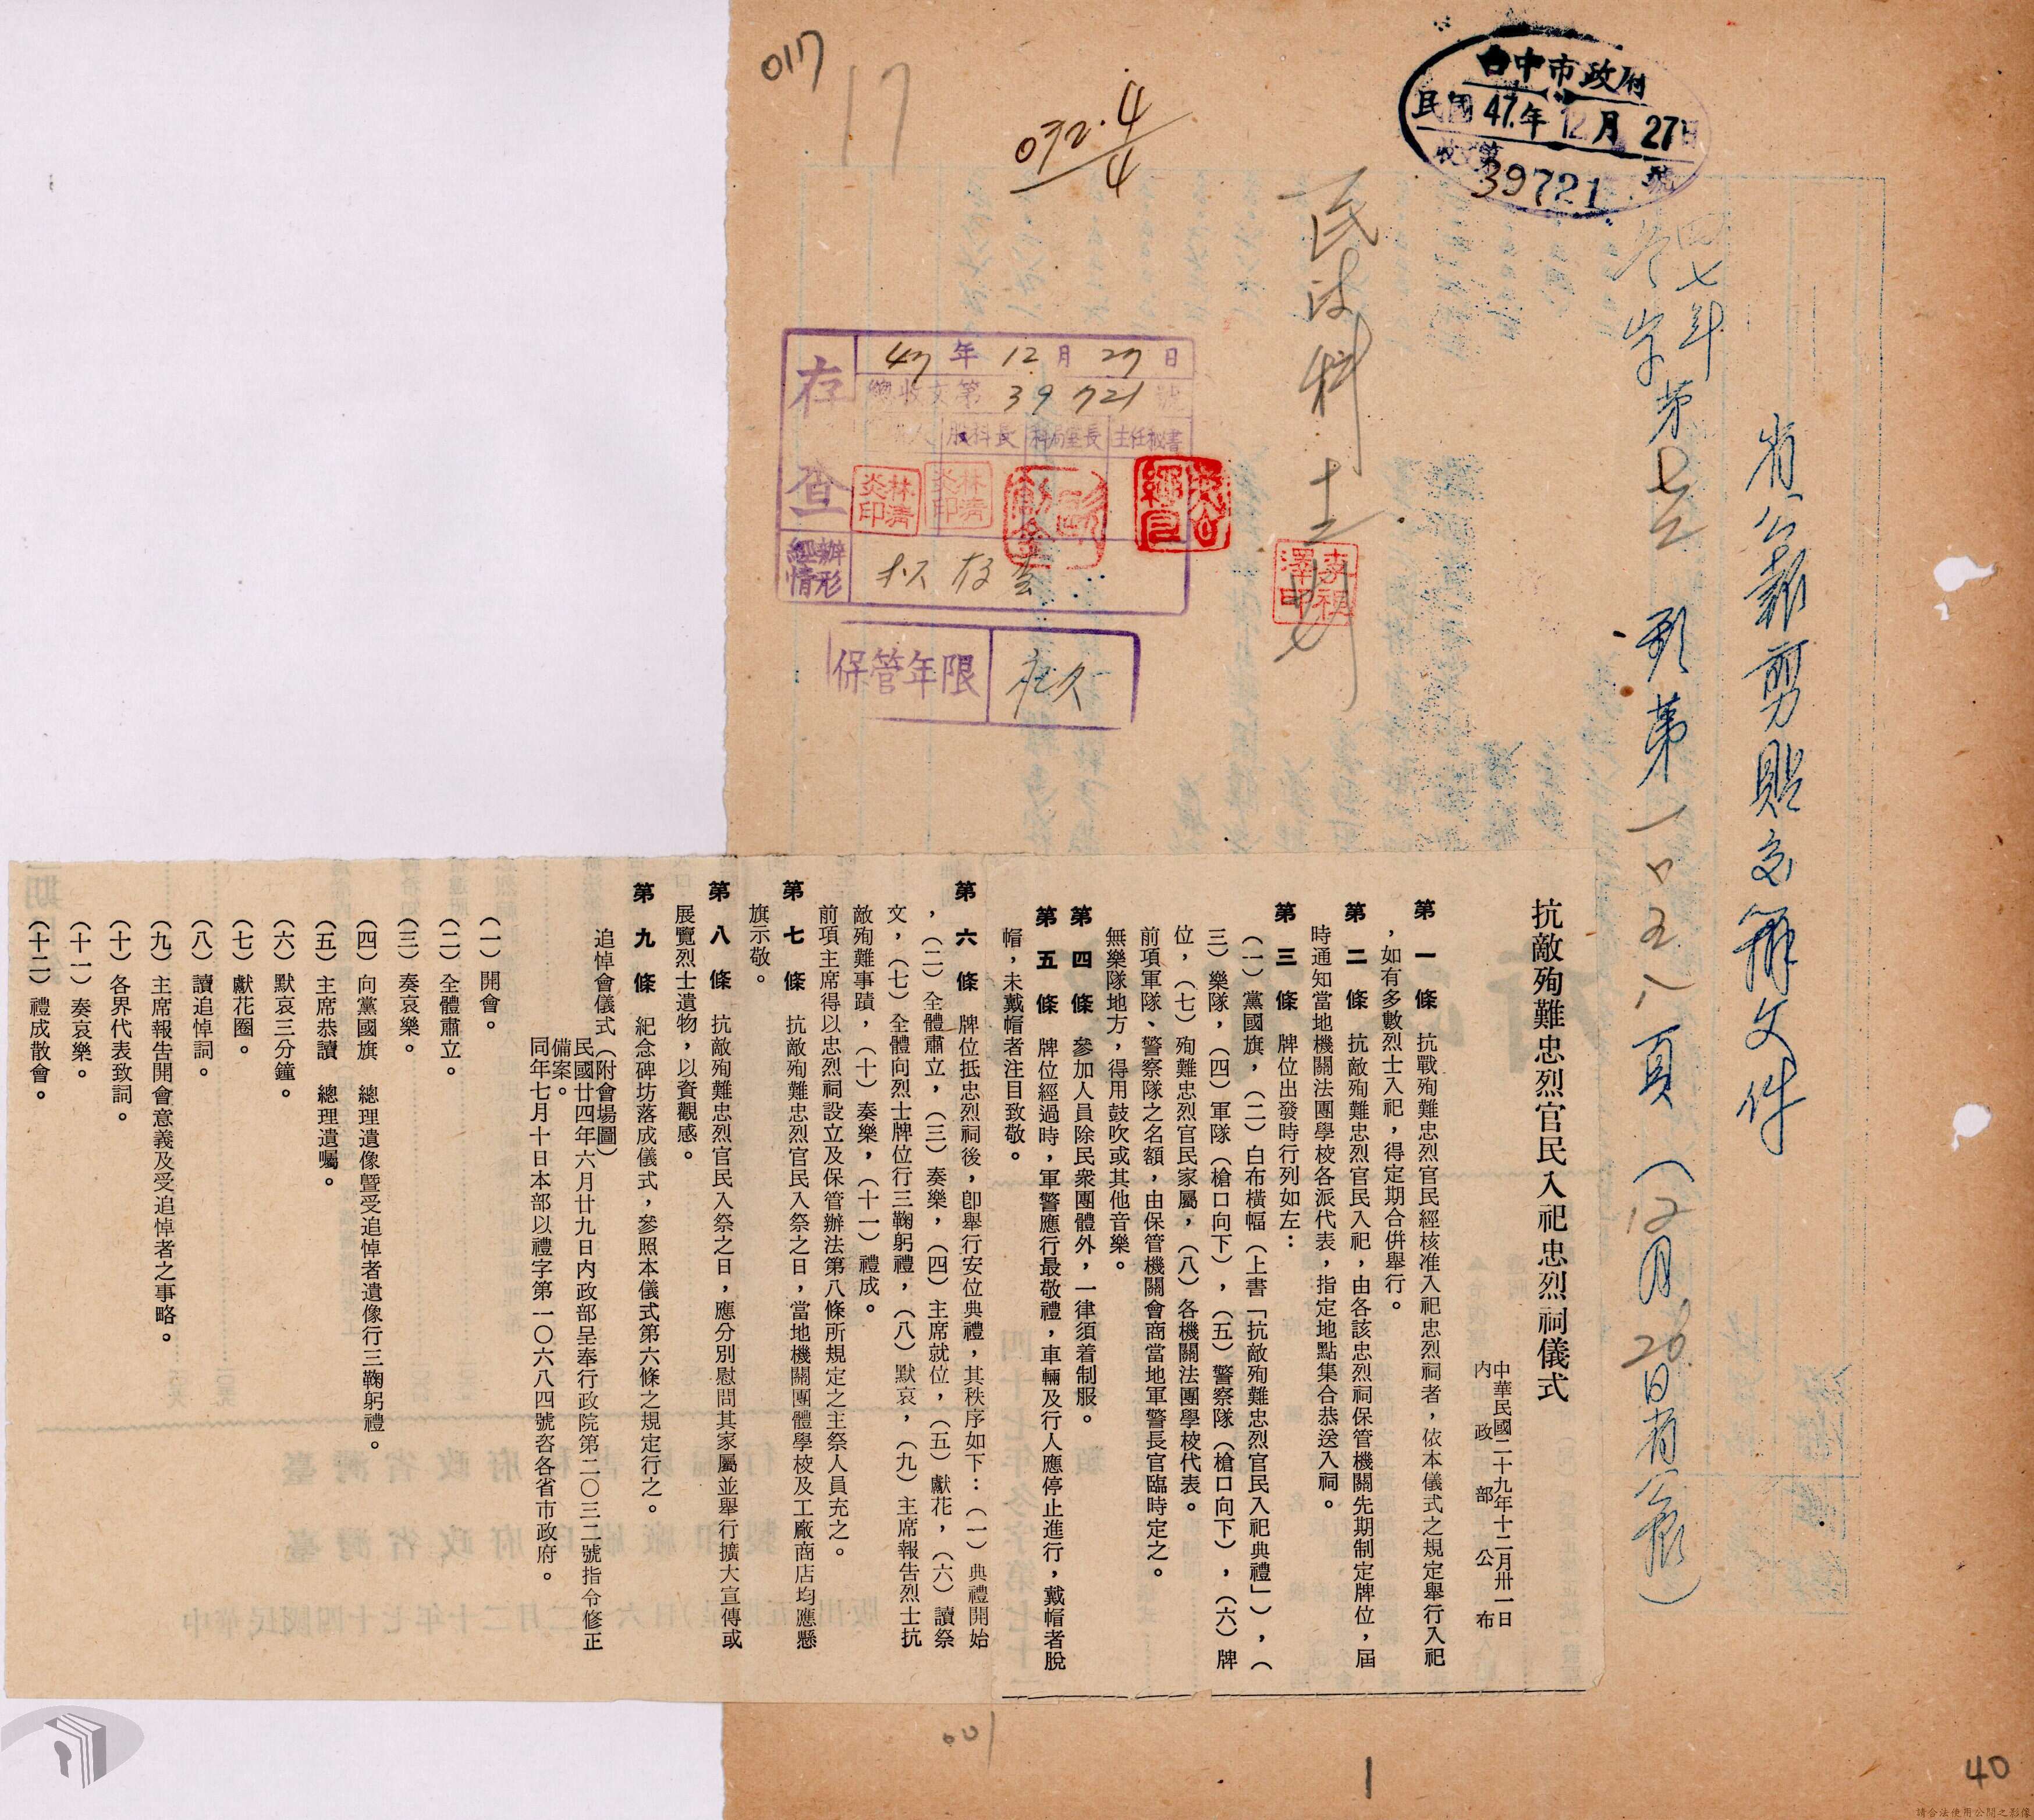 省公報剪貼交辦文件
四七年冬字第七三期第一〇五八頁（12月26日省公報）
台中市政府
民國47年12月27日
收文第39721號
民政科
李祖澤印
017
17
072.4/4
存查
47年12月27日
總收文第39721號
股科長
科局室長
主任秘書
林清炎印
林清炎印
辦理情形
擬存查
保管年限
永久
抗敵殉難忠烈官民入祀忠烈祠儀式
中華民國二十九年十二月卅一日
內政部公布
第一條　抗戰殉難忠烈官民經核准入祀忠烈祠者，依本儀式之規定舉行入祀
，如有多數烈士入祀，得定期合併舉行。
第二條　抗敵殉難忠烈官民入祀，由各該忠烈祠保管機關先期制定牌位，屆
時通知當地機關法團學校各派代表，指定地點集合恭送入祠。
第三條　牌位出發時行列如左：
（一）黨國旗，（二）白布橫幅（上書「抗敵殉難忠烈官民入祀典禮」），（
三）樂隊，（四）軍隊（槍口向下），（五）警察隊（槍口向下），（六）牌
位，（七）殉難忠烈官民家屬，（八）各機關法團學校代表。
前項軍隊、警察隊之名額，由保管機關會商當地軍警長官臨時定之。
無樂隊地方，得用鼓吹或其他音樂。
第四條　參加人員除民衆團體外，一律須着制服。
第五條　牌位經過時，軍警應行最敬禮，車輛及行人應停止進行，戴帽者脫
帽，未戴帽者注目致敬。
第六條　牌位抵忠烈祠後，卽舉行安位典禮，其秩序如下：（一）典禮開始
，（二）全體肅立，（三）奏樂，（四）主席就位，（五）獻花，（六）讀祭
文，（七）全體向烈士牌位行三鞠躬禮，（八）默哀，（九）主席報告烈士抗
敵殉難事蹟，（十）奏樂，（十一）禮成。
前項主席得以忠烈祠設立及保管辦法第八條所規定之主祭人員充之。
第七條　抗敵殉難忠烈官民入祭之日，當地機關團體學校及工廠商店均應懸
旗示敬。
第八條　抗敵殉難忠烈官民入祭之日，應分別慰問其家屬並舉行擴大宣傳或
展覽烈士遺物，以資觀感。
第九條　紀念碑坊落成儀式，參照本儀式第六條之規定行之。
追悼會儀式（附會場圖）
民國廿四年六月廿九日內政部呈奉行政院第二〇三二號指令修正
備案。
同年七月十日本部以禮字第一〇六八四號咨各省市政府。
（一）開會。
（二）全體肅立。
（三）奏哀樂。
（四）向黨國旗　總理遺像暨受追悼者遺像行三鞠躬禮。
（五）主席恭讀　總理遺囑。
（六）默哀三分鐘。
（七）獻花圈。
（八）讀追悼詞。
（九）主席報告開會意義及受追悼者之事略。
（十）各界代表致詞。
（十一）奏哀樂。
（十二）禮成散會。
001
1
40
請合法使用公開之影像